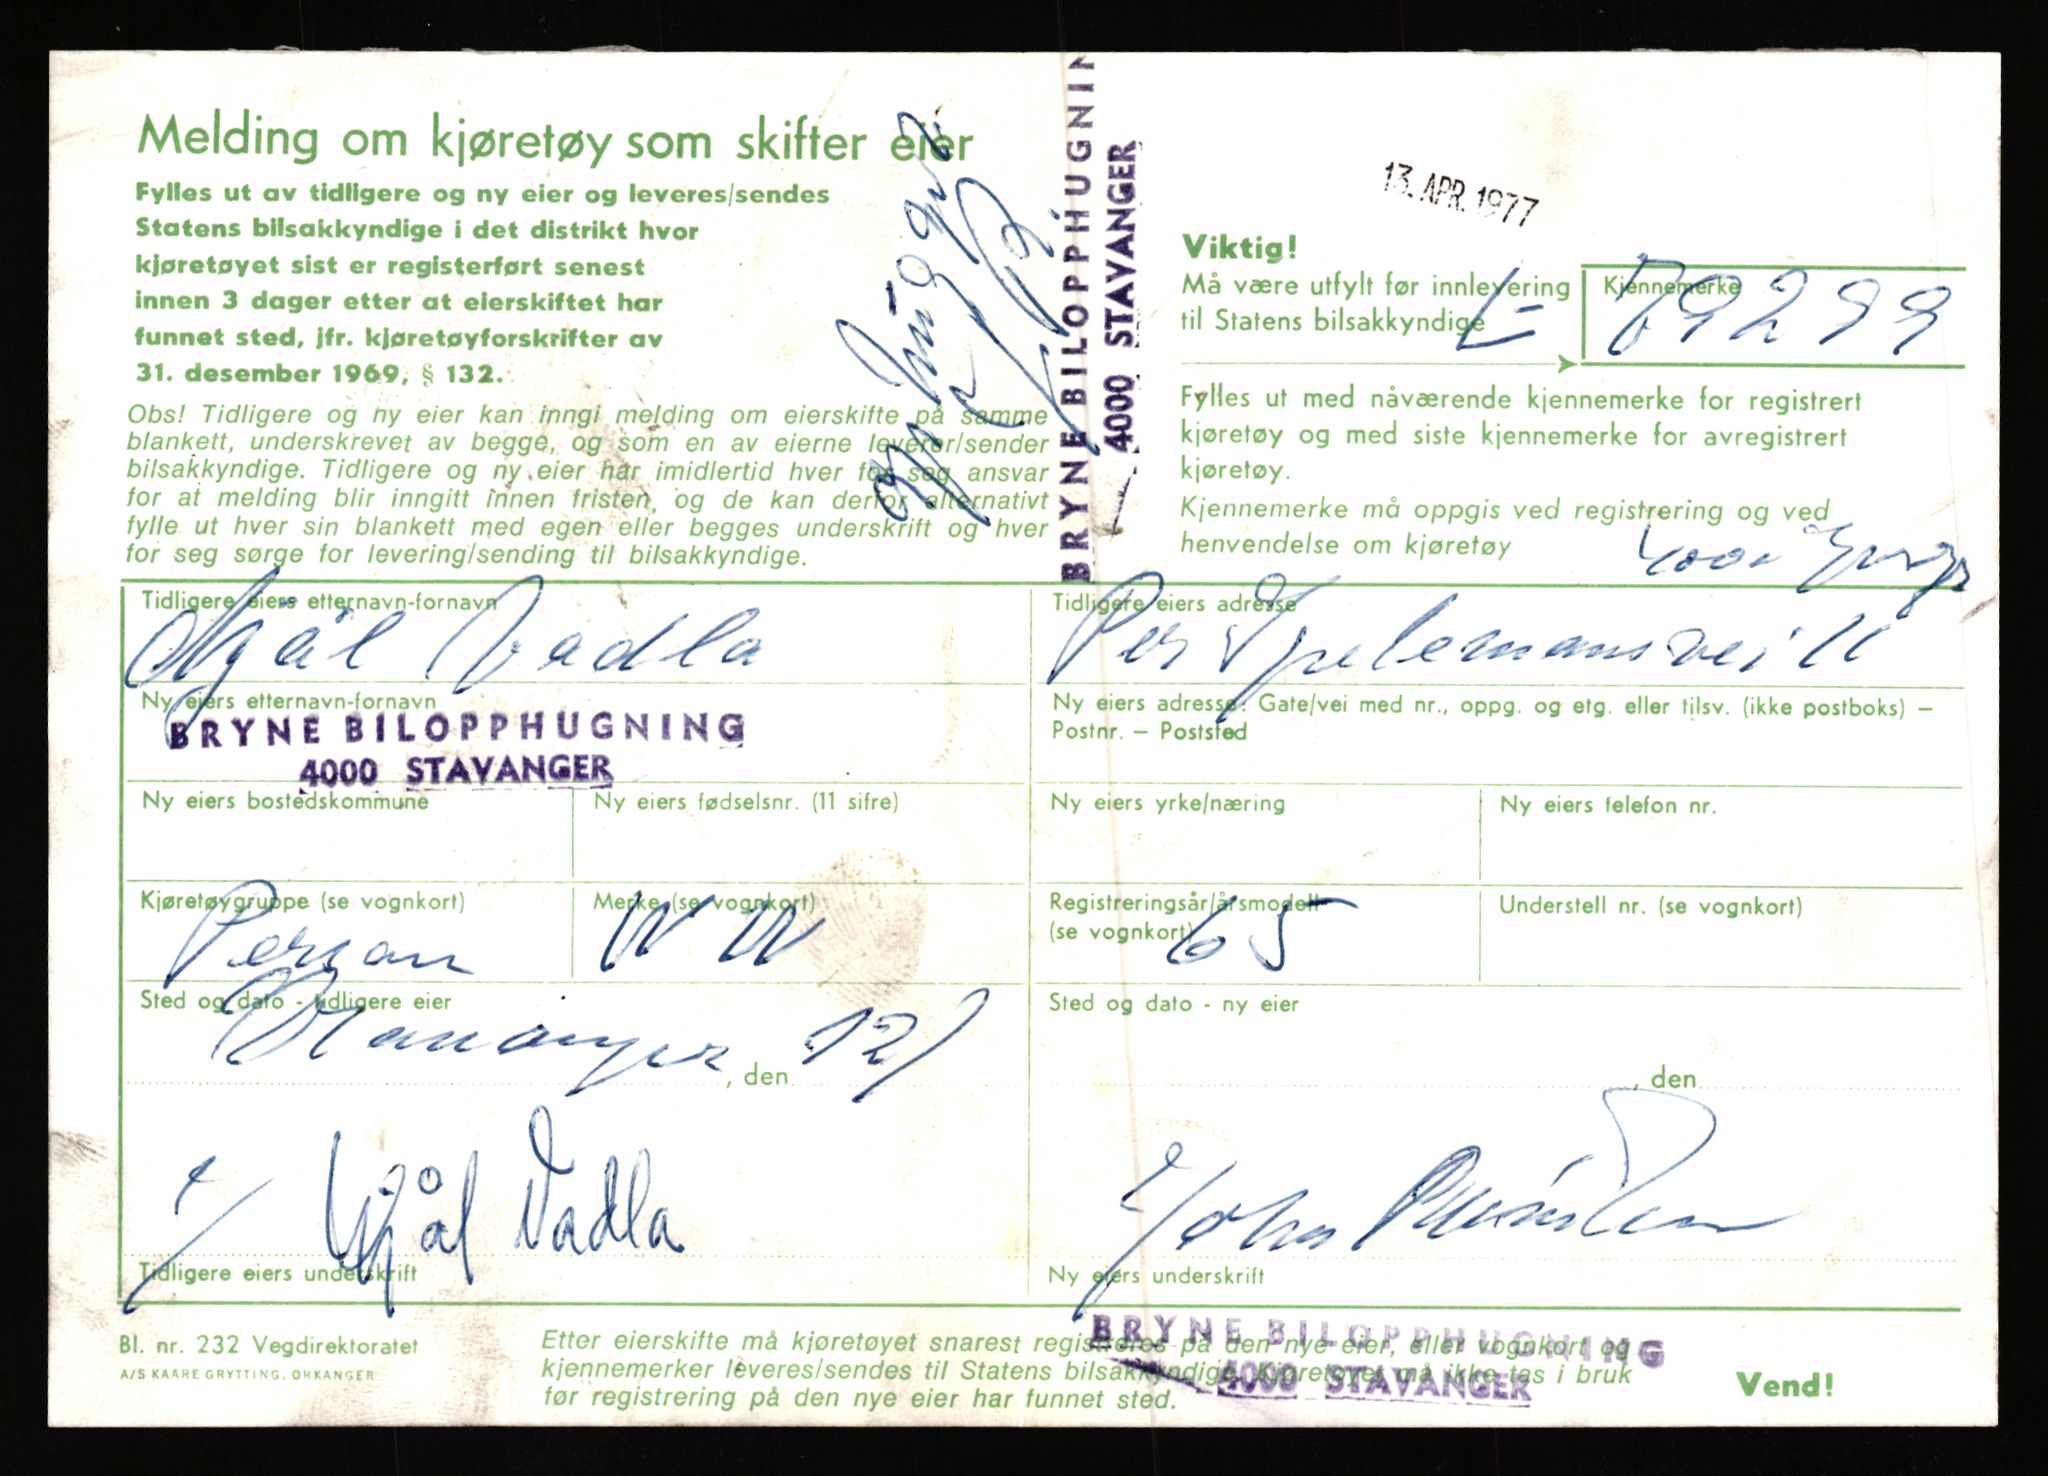 Melding om kjøretøy som skifter eier
Fylles ut av tidligere og ny eier og leveres/sendes
Statens bilsakkyndige i det distrikt hvor
kjøretøyet sist er registerført senest
innen 3 dager etter at eierskiftet har
funnet sted, jfr. kjøretøyforskrifter av
31. desember 1969, § 132.
Obs! Tidligere og ny eier kan inngi melding om eierskifte på samme
blankett, underskrevet av begge, og som en av eierne leverer/sender
bilsakkyndige. Tidligere og ny eier har imidlertid hver for seg ansvar
for at melding blir inngitt innen fristen, og de kan derfor alternativt
fylle ut hver sin blankett med egen eller begges underskrift og hver
for seg sørge for levering/sending til bilsakkyndige.
BRYNE BILOPPHUGNIN
4000 STAVANGER
13. APR. 1977
Viktig!
Må være utfylt før innlevering
til Statens bilsakkyndige
Kjennemerke
L- 79299
Fylles ut med nåværende kjennemerke for registrert
kjøretøy og med siste kjennemerke for avregistrert
kjøretøy.
Kjennemerke må oppgis ved registrering og ved
henvendelse om kjøretøy
Tidligere eiers etternavn-fornavn
Kjål Vadla
Tidligere eiers adresse
Per Spelemansvei 11
Ny eiers etternavn-fornavn
BRYNE BILOPPHUGNING
4000 STAVANGER
Ny eiers adresse: Gate/vei med nr., oppg. og etg. eller tilsv. (ikke postboks) —
Postnr. — Poststed
Ny eiers bostedskommune
Ny eiers fødselsnr. (11 sifre)
Ny eiers yrke/næring
Ny eiers telefon nr.
Kjøretøygruppe (se vognkort)
Person
Merke (se vognkort)
WW
Registreringsår/årsmodell
(se vognkort)
65
Understell nr. (se vognkort)
Sted og dato - tidligere eier
Stavanger, den 12/
Sted og dato - ny eier
, den
Kjål Vadla
Tidligere eiers underskrift
John
Ny eiers underskrift
Bl. nr. 232 Vegdirektoratet
A/S KAARE GRYTTING, ORKANGER
Etter eierskifte må kjøretøyet snarest registreres på den nye eier, eller vognkort og
kjennemerker leveres/sendes til Statens bilsakkyndige. Kjøretøyet må ikke tas i bruk
før registrering på den nye eier har funnet sted.
BRYNE BILOPPHUGNING
4000 STAVANGER
Vend!